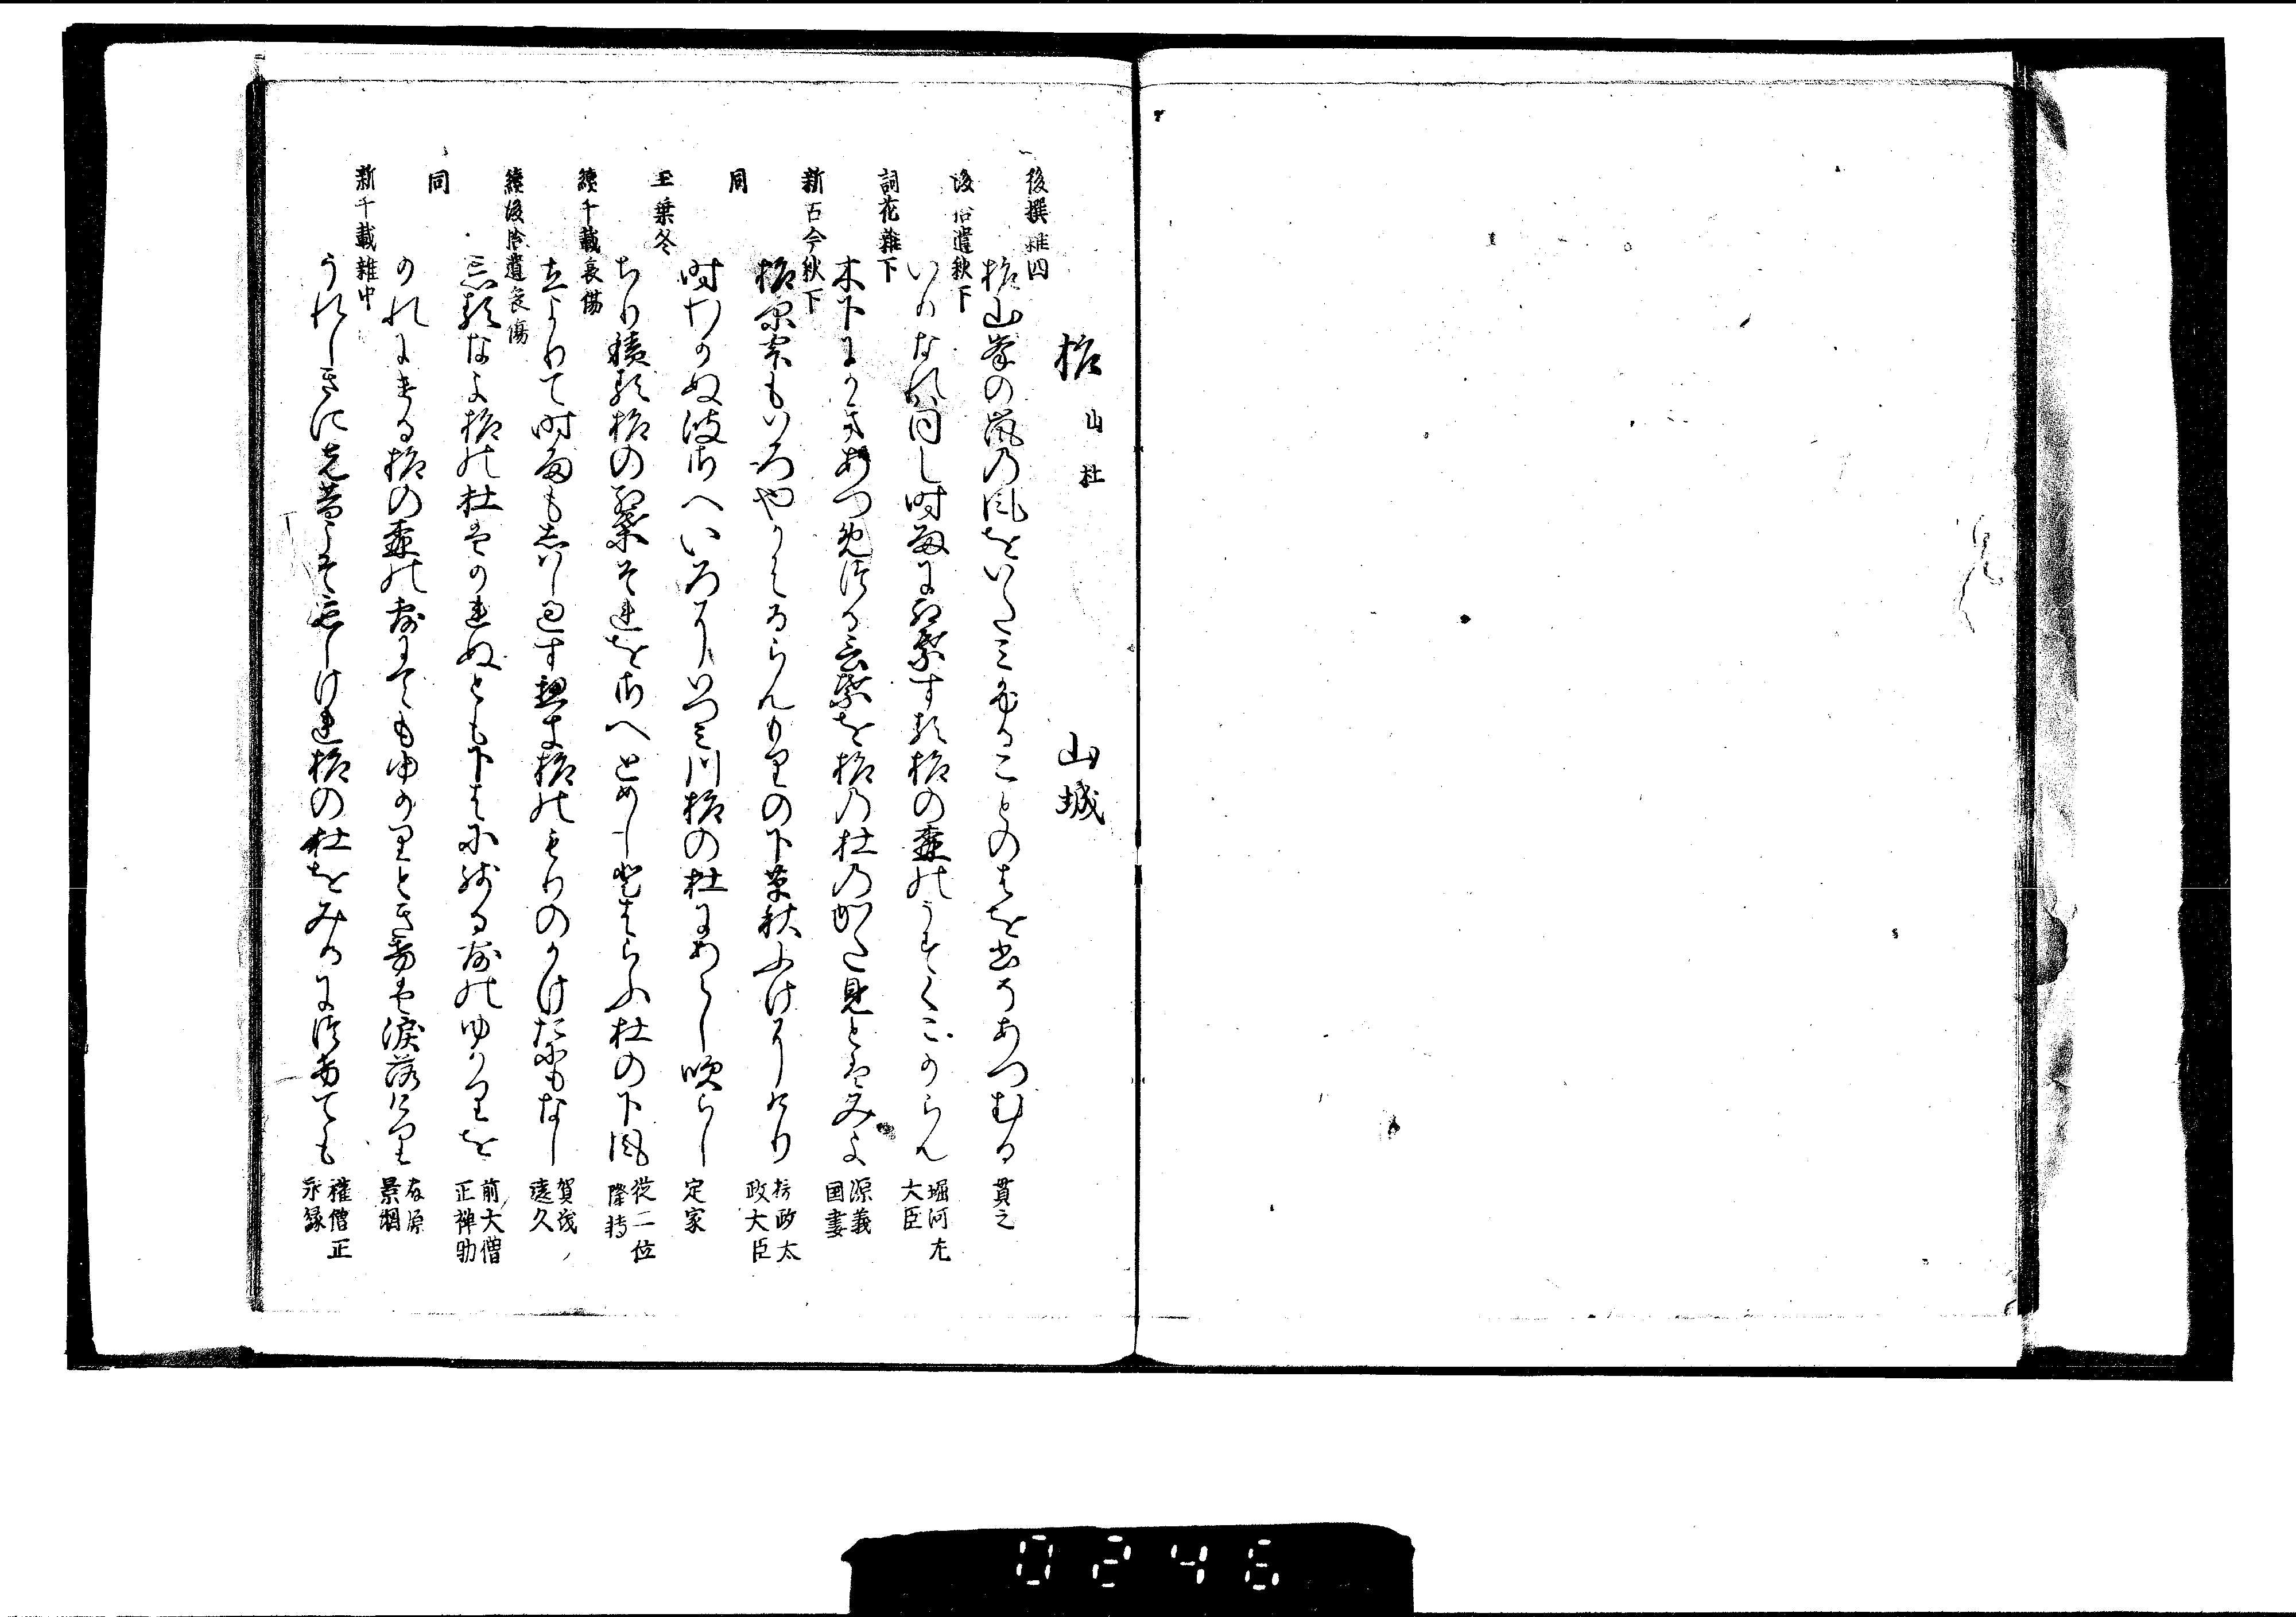 柞 山 杜 山城
後撰雑四
柞山峯の嵐乃風をいたミふることのはを書そあつむる 貫之
後拾遺秋下
いかなれは同し時雨に紅葉する柞の森のうすくこからん 堀河左大臣
詞花雑下
木下にかきあつめつる言葉を柞乃杜のかた見とはみよ 源義国妻
新古今秋下
柞原雫もいろやかはるらんもりの下草秋ふけにけり 摂政太政大臣
同
時わかぬ波さへいろにいつミ川柞の杜にあらし吹らし 定家
玉葉冬
ちり積る柞の紅葉それをさへとめしとはらふ杜の下風 従二位隆博
続千載哀傷
立よりて時雨もしはし過す柞のもりのかけたにもなし 賀茂遠久
続後拾遺哀傷
忘るなよ柞の杜はかれぬとも下はに残る露のゆかりを 前大僧正禅助
同
かれにける柞の森の露にてもゆかりときけは涙落けり 景綱
新千載雑中
うれしきに先昔こそ忘しけれ柞の杜をみるにつけても 権僧正永縁
0246